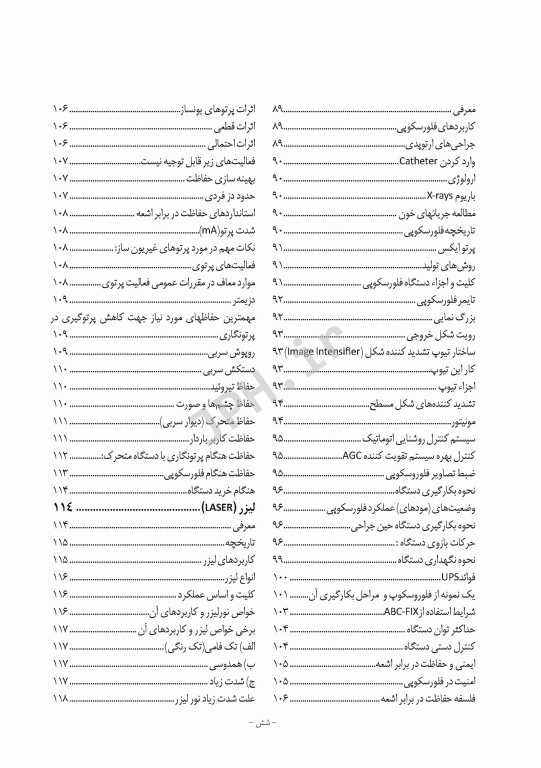 معرفی ۸۹
کاربردهای فلورسکوپی ۸۹
جراحی‌های ارتوپدی ۸۹
وارد کردن Catheter ۹۰
ارولوژی ۹۰
باریوم X-rays ۹۰
مطالعه جریانهای خون ۹۰
تاریخچه فلورسکوپی ۹۰
پرتو ایکس ۹۱
روش‌های تولید ۹۱
کلیت و اجزاء دستگاه فلورسکوپی ۹۱
تایمر فلورسکوپی ۹۲
بزرگ نمایی ۹۲
رویت شکل خروجی ۹۳
ساختار تیوپ تشدید کننده شکل (Image Intensifier) ۹۳
کار این تیوپ ۹۳
اجزاء تیوپ ۹۳
تشدید کننده‌های شکل مسطح ۹۴
مونیتور ۹۴
سیستم کنترل روشنایی اتوماتیک ۹۵
کنترل بهره سیستم تقویت کننده AGC ۹۵
ضبط تصاویر فلوروسکوپی ۹۵
نحوه بکارگیری دستگاه ۹۶
وضعیت‌های (مودهای) عملکرد فلورسکوپی ۹۶
نحوه بکارگیری دستگاه حین جراحی ۹۶
حرکات بازوی دستگاه : ۹۶
نحوه نگهداری دستگاه ۹۹
فوائد UPS ۱۰۰
یک نمونه از فلوروسکوپ و مراحل بکارگیری آن ۱۰۱
شرایط استفاده از ABC-FIX ۱۰۳
حداکثر توان دستگاه ۱۰۴
کنترل دستی دستگاه ۱۰۴
ایمنی و حفاظت در برابر اشعه ۱۰۵
امنیت در فلورسکوپی ۱۰۵
فلسفه حفاظت در برابر اشعه ۱۰۶
اثرات پرتوهای یونساز ۱۰۶
اثرات قطعی ۱۰۶
اثرات احتمالی ۱۰۶
فعالیت‌های زیر قابل توجیه نیست ۱۰۷
بهینه سازی حفاظت ۱۰۷
حدود دز فردی ۱۰۷
استانداردهای حفاظت در برابر اشعه ۱۰۸
شدت پرتو(mA) ۱۰۸
نکات مهم در مورد پرتوهای غیریون ساز: ۱۰۸
فعالیت‌های پرتوی ۱۰۸
موارد معاف در مقررات عمومی فعالیت پرتوی ۱۰۸
دزیمتر ۱۰۹
مهمترین حفاظهای مورد نیاز جهت کاهش پرتوگیری در
پرتونگاری ۱۰۹
روپوش سربی ۱۰۹
دستکش سربی ۱۱۰
حفاظ تیروئید ۱۱۰
حفاظ چشم‌ها و صورت ۱۱۰
حفاظ متحرک (دیوار سربی) ۱۱۱
حفاظت کاربر باردار ۱۱۱
حفاظت هنگام پرتونگاری با دستگاه متحرک: ۱۱۲
حفاظت هنگام فلورسکوپی ۱۱۳
هنگام خرید دستگاه ۱۱۴
لیزر (LASER) ۱۱٤
معرفی ۱۱۴
تاریخچه ۱۱۵
کاربردهای لیزر ۱۱۵
انواع لیزر ۱۱۶
کلیت و اساس عملکرد ۱۱۶
خواص نورلیزر و کاربردهای آن ۱۱۶
برخی خواص لیزر و کاربردهای آن ۱۱۷
الف) تک فامی(تک رنگی) ۱۱۷
ب) همدوسی ۱۱۷
ج) شدت زیاد ۱۱۷
علت شدت زیاد نور لیزر ۱۱۸
- شش -